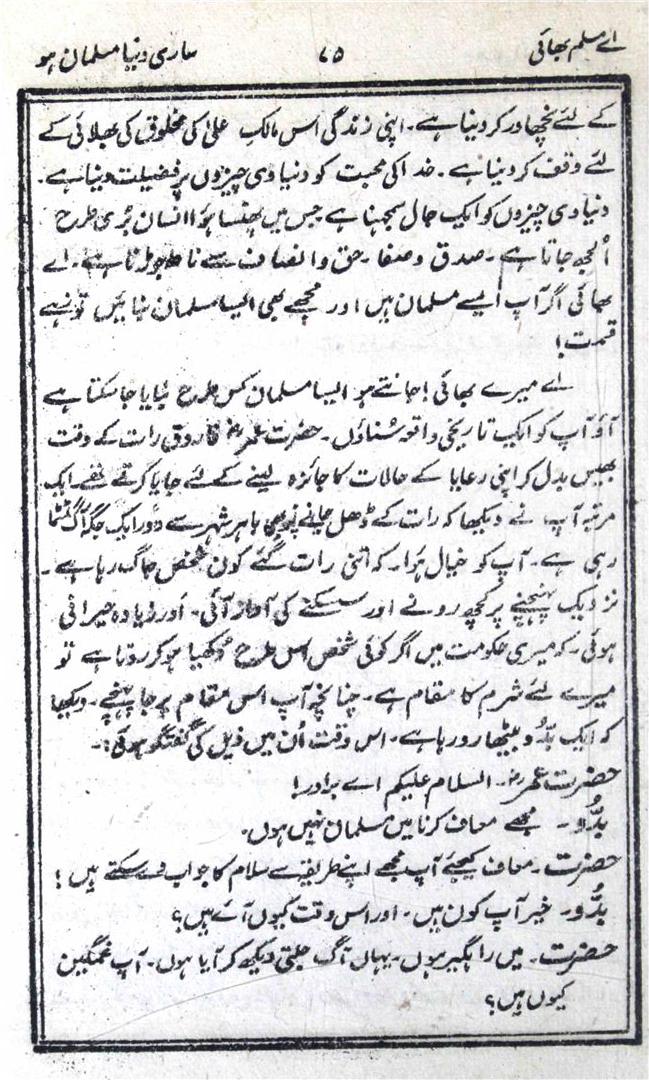 اے مسلم بھائی ۷۵ ساری دنیا مسلمان ہو
کے لئے نچھاور کر دینا ہے۔ اپنی زندگی اس مالکِ علیٰ کی مخلوق کی بھلائی کے
لئے وقف کر دینا ہے۔ خدا کی محبت کو دنیاوی چیزوں پر فضیلت دینا ہے۔
دنیاوی چیزوں کو ایک جال سمجہنا ہے جس میں پھنسا ہؤا انسان بُری طرح
اُلجھ جاتا ہے۔ صدق و صفا۔ حق و انصاف سے ناطہ جوڑتا ہے۔ اے
بھائی اگر آپ ایسے مسلمان ہیں اور مجھے بھی ایسا مسلمان بنائیں تو زہے
قسمت!
اے میرے بھائی! جانتے ہو ایسا مسلمان کس طرح بنایا جا سکتا ہے
آؤ آپ کو ایک تاریخی واقعہ سُناؤں۔ حضرت عمرؓ فاروق رات کے وقت
بھیس بدل کر اپنی رعایا کے حالات کا جائزہ لینے کے لئے جایا کرتے تھے۔ ایک
مرتبہ آپ نے دیکھا کہ رات کے ڈھل جانے پر بھی باہر شہر سے دُور ایک جگہ آگ
رہی ہے۔ آپ کو خیال ہؤا۔ کہ اتنی رات گئے کون شخص جاگ رہا ہے۔
نزدیک پہنچنے پر کچھ رونے اور سسکنے کی آواز آئی۔ اور زیادہ حیرانی
ہوئی۔ کہ میری حکومت میں اگر کوئی شخص اس طرح دُکھیا ہو کر روتا ہے تو
میرے لئے شرم کا مقام ہے۔ چنانچہ آپ اس مقام پر جا پہنچے۔ دیکھا
کہ ایک بدُّو بیٹھا رو رہا ہے۔ اس وقت اُن میں ذیل کی گفتگو ہوئی:۔
حضرت عمرؓ۔ السلام علیکم اے برادر!
بدُّو۔ مجھے معاف کرنا میں مسلمان نہیں ہوں۔
حضرت۔ معاف کیجئے آپ مجھے اپنے طریقے سے سلام کا جواب دے سکتے ہیں!
بدُّو۔ خیر آپ کون ہیں۔ اور اس وقت کیوں آئے ہیں؟
حضرت۔ میں راہگیر ہوں۔ یہاں آگ جلتی دیکھ کر آیا ہوں۔ آپ غمگین
کیوں ہیں؟